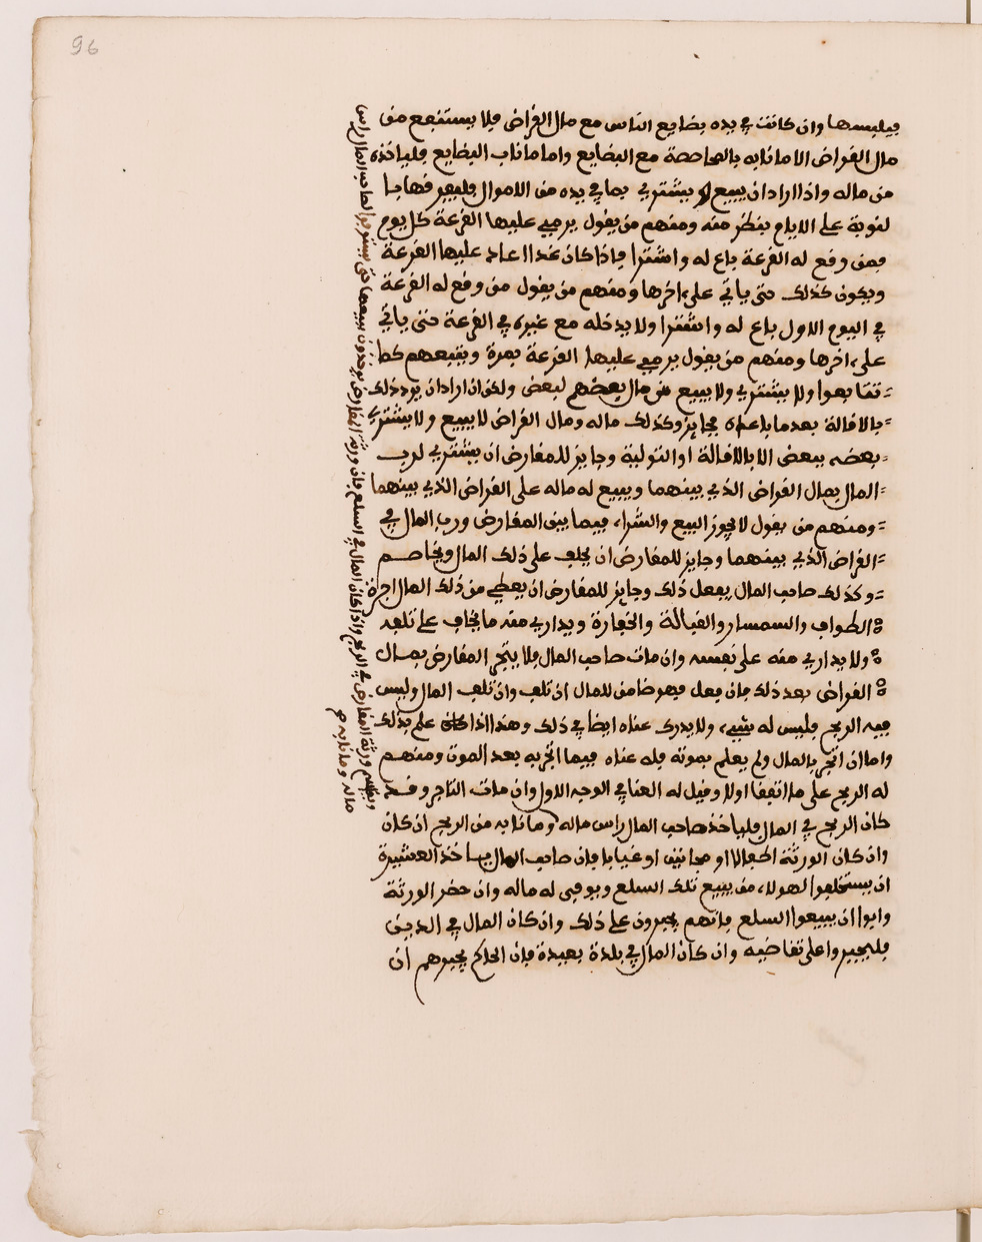 96
فيلبسها وان كانت في يده بضايع الناس مع مال القراض فلا يستنفع من
مال القراض الا ما نابه بالمحاصصة مع البضايع واما ماناب البضايع فلياخذه
من ماله واذا اراد ان يبيع او يشتري بما في يده من الاموال
لنوبة على الايام ينظر منه ومنهم من يقول يرمي عليها القرعة كل يوم
فمن وقع له القرعة باع له واشترا فاذا كان غدا اعاد عليها القرعة
ويكون كذلك حتى ياتي على ءاخرها ومنهم من يقول من وقع له القرعة
في اليوم الاول باع له واشترا ولا يدخله مع غيره في القرعة حتى ياتي
على ءاخرها ومنهم من يقول يرمي عليها القرعة بمرة ويتبعهم كما
تتابعوا ولا يشتري ولا يبيع من مال بعضهم لبعض ولكن ان اراد ان يرد ذلك
بالاقالة بعدما باعه فجايز وكذلك ماله ومال القراض لا يبيع ولا يشتري
بعضه ببعض الا بالاقالة او التولية وجايز للمقارض ان يشتري لرب
المال بمال القراض الذي بينهما ويبيع له ماله على القراض الذي بينهما
ومنهم من يقول لا يجوز البيع والشراء فيما بين المقارض ورب المال في
القراض الذي بينهما وجايز للمقارض ان يحلف على ذلك المال ويخاصم
وكذلك صاحب المال يفعل ذلك وجايز للمقارض ان يعطي من ذلك المال اجرة
الطواف والسمسار والقبالة والخفارة ويداري منه ما يخاف على تلفه
ولا يداري منه على نفسه وان مات صاحب المال فلا يتجر المقارض بمال
القراض بعد ذلك فان فعل فهو ضامن للمال ان تلف وان تلف المال وليس
فيه الربح فليس له شيء ولا يدرك عناه ايضا في ذلك وهذا اذا كان علم بذلك
واما ان اتجر بالمال ولم يعلم بموته فله عناه فيما اتجر به بعد الموت ومنهم
له الربح على ما اتفقا اولا وقيل له العنا في الوجه الاول وان مات التاجر وقد
كان الربح في المال فلياخذ صاحب المال راس ماله وما نابه من الربح ان كان
وان كان الورثة اطفالا او مجانين او غيابا فان صاحب المال ياخذ العشيرة
ان يستخلفوا لهولاء من يبيع تلك السلع ويوفي له ماله وان حضر الورثة
وابوا ان يبيعوا السلع فانهم يجبرون على ذلك وان كان المال في الدين
فليجبروا على تقاضيه وان كان المال في بلدة بعيدة فان الحاكم يجبرهم ان
ويقسم ورثة المقارض في الربح واذا كان المال في السلع فان ورثة المقارض يوخذون ببيعها حتى لصاحب المال راس
ماله وما نابه